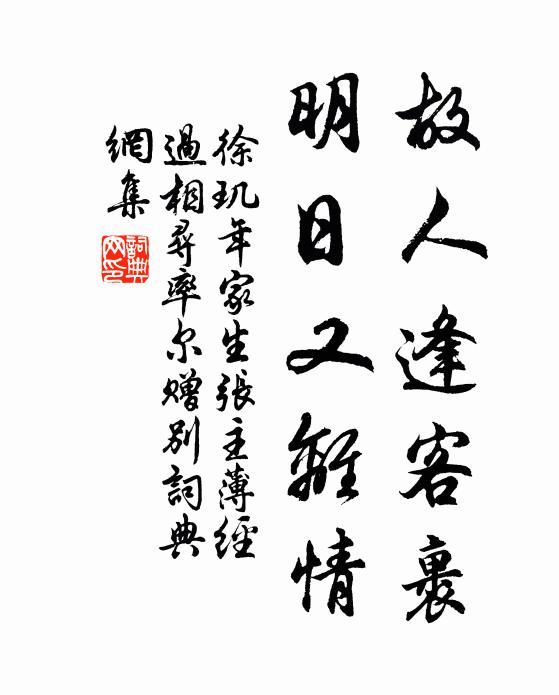 故人逢客裏
明日又離情
徐玑年家生張主薄經
過相尋率尔贈别詞典
網集
詞典網印